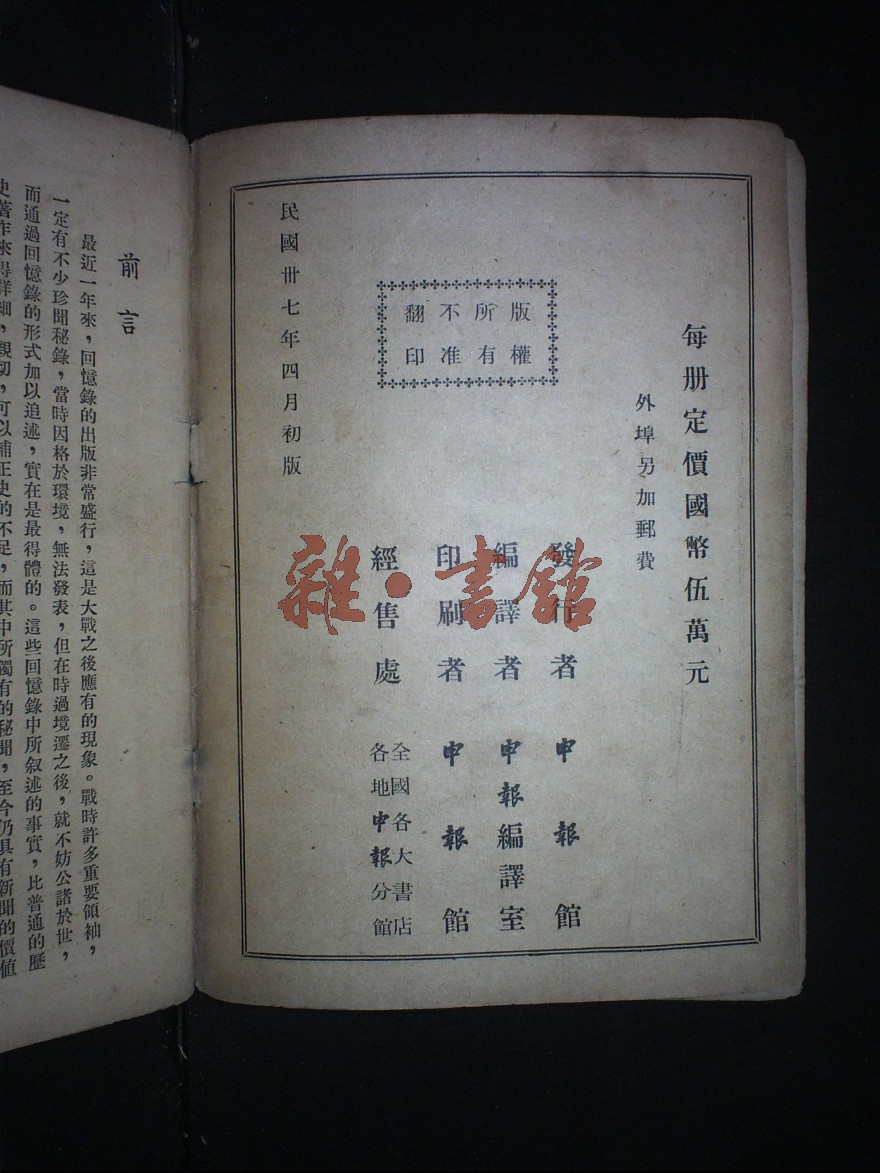 每册定價國幣伍萬元
外埠另加郵費
發行者 申報館
編譯者 申報編譯室
印刷者 申報館
經售處 全國各大書店
各地申報分館
版權
所有
不准
翻印
民國卅七年四月初版
雜·書館
前言
最近一年來，回憶錄的出版非常盛行，這是大戰之後應有的現象。戰時許多重要領袖，
一定有不少珍聞秘錄，當時因格於環境，無法發表，但在時過境遷之後，就不妨公諸於世，
而通過回憶錄的形式加以追述，實在是最得體的。這些回憶錄中所叙述的事實，比普通的歷
史著作來得詳細，親切，可以補正史的不足，而其中所獨有的秘聞，至今仍具有新聞的價値